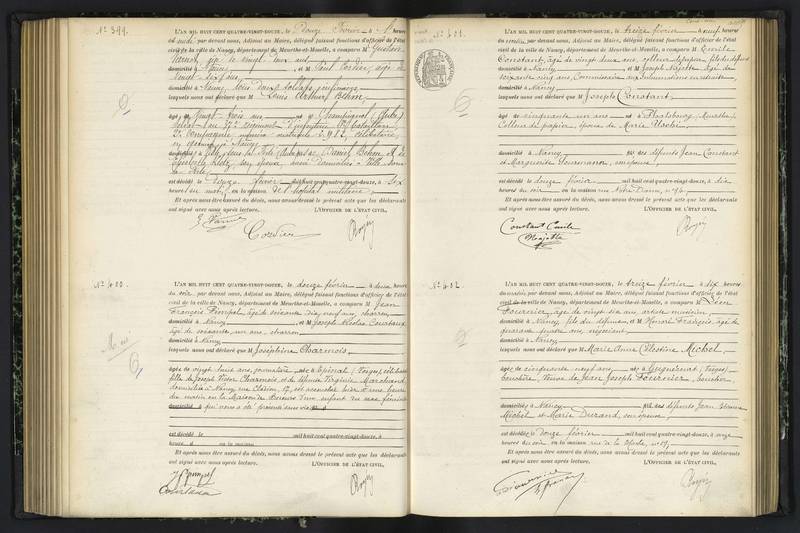 N° 399.
L'AN MIL HUIT CENT QUATRE-VINGT-DOUZE, le Douze Février à
heures du par devant nous, Adjoint au Maire, délégué faisant fonctions d'officier de l'état
civil de la ville de Nancy, département de Meurthe-et-Moselle, a comparu M. Gustave
âgé de vingt deux ans
domicilié à Nancy et M. Paul Cordier, âgé de
vingt six ans
domicilié à Nancy, tous deux soldats infirmiers
lesquels nous ont déclaré que M. Louis Arthur Bohm
âgé de vingt trois ans né à Champignol (Aube)
soldat au 37e régiment d'infanterie
célibataire
en à Nancy
domicilié à Ville sous la Ferté (Aube) fils de Daniel Bohm et de
son épouse, domiciliés à Ville sous
la Ferté
est décédé le douze février mil huit cent quatre-vingt-douze, à six
heures du matin, en la maison de l'hôpital militaire
Et après nous être assuré du décès, nous avons dressé le présent acte que les déclarants
ont signé avec nous après lecture. L'OFFICIER DE L'ÉTAT CIVIL,
Cordier
N° 400.
L'AN MIL HUIT CENT QUATRE-VINGT-DOUZE, le douze février à deux heures
du soir par devant nous, Adjoint au Maire, délégué faisant fonctions d'officier de l'état
civil de la ville de Nancy, département de Meurthe-et-Moselle, a comparu M. Jean
François âgé de soixante dix neuf ans, charron
domicilié à Nancy et M. Joseph Nicolas
âgé de soixante un ans, charron
domicilié à Nancy
lesquels nous ont déclaré que Joséphine Charmois
âgée de vingt huit ans, journalière née à Epinal (Vosges), célibataire
fille de Joseph Victor Charmois et de défunte Virginie Marchand
domiciliée à Nancy rue est accouchée hier à une heure
du matin en la Maison de Secours d'un enfant du sexe féminin
domicilié à qu'il nous a été présenté sans vie
est décédé le mil huit cent quatre-vingt-douze, à
heures d en la maison
Et après nous être assuré du décès, nous avons dressé le présent acte que les déclarants
ont signé avec nous après lecture. L'OFFICIER DE L'ÉTAT CIVIL,
N° 401.
L'AN MIL HUIT CENT QUATRE-VINGT-DOUZE, le treize février à neuf heures
du matin par devant nous, Adjoint au Maire, délégué faisant fonctions d'officier de l'état
civil de la ville de Nancy, département de Meurthe-et-Moselle, a comparu M. Emile
Constant, âgé de vingt deux ans, colleur de papier, fils du défunt
domicilié à Nancy et M. Joseph Najotte âgé de
soixante cinq ans, Commissaire aux Inhumations en retraite
domicilié à Nancy
lesquels nous ont déclaré que M. Joseph Constant
âgé de cinquante un ans né à Phalsbourg (Meurthe)
Colleur de papier, époux de Marie
domicilié à Nancy fils des défunts Jean Constant
et Marguerite son épouse
est décédé le douze février mil huit cent quatre-vingt-douze, à dix
heures du soir en la maison rue Notre Dame, n° 94
Et après nous être assuré du décès, nous avons dressé le présent acte que les déclarants
ont signé avec nous après lecture. L'OFFICIER DE L'ÉTAT CIVIL,
Constant Emile
Najotte
N° 402.
L'AN MIL HUIT CENT QUATRE-VINGT-DOUZE, le treize février à dix heures
du matin par devant nous, Adjoint au Maire, délégué faisant fonctions d'officier de l'état
civil de la ville de Nancy, département de Meurthe-et-Moselle, a comparu M. Léon
Fournier, âgé de vingt six ans, artiste musicien
domicilié à Nancy, fils du défunt et M. Honoré François, âgé de
quarante quatre ans, négociant
domicilié à Nancy
lesquels nous ont déclaré que Marie Anne Célestine Michel
âgée de cinquante neuf ans née à Gugnécourt (Vosges)
veuve de Jean Joseph Fournier,
domicilié à Nancy fille des défunts Jean
Michel et Marie Durand, son épouse
est décédée le douze février mil huit cent quatre-vingt-douze, à onze
heures du soir en la maison rue de la
Et après nous être assuré du décès, nous avons dressé le présent acte que les déclarants
ont signé avec nous après lecture. L'OFFICIER DE L'ÉTAT CIVIL,